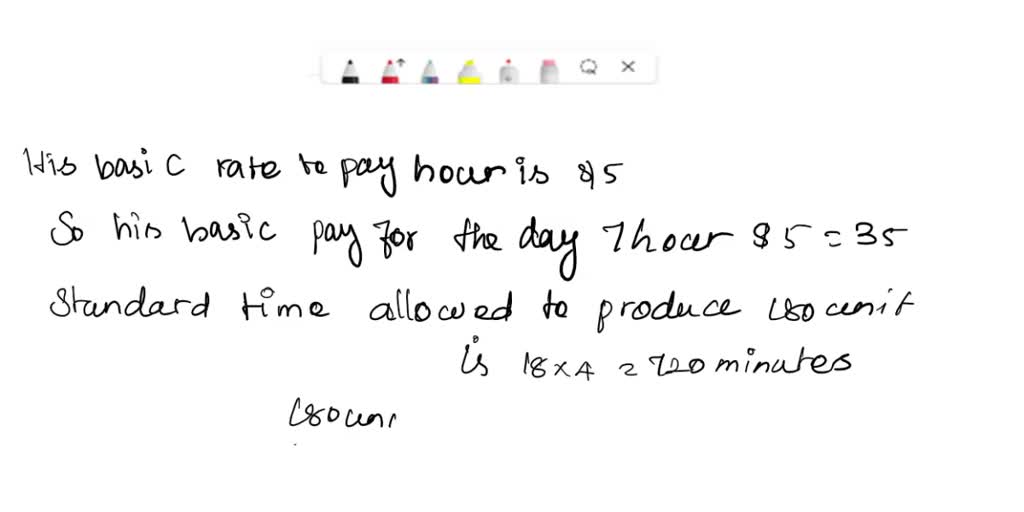 His basic rate to pay hour is $5
So his basic pay for the day 7 hour $5 = 35
Standard time allowed to produce 180 unit
is 18 x 4 = 720 minutes
180 uni